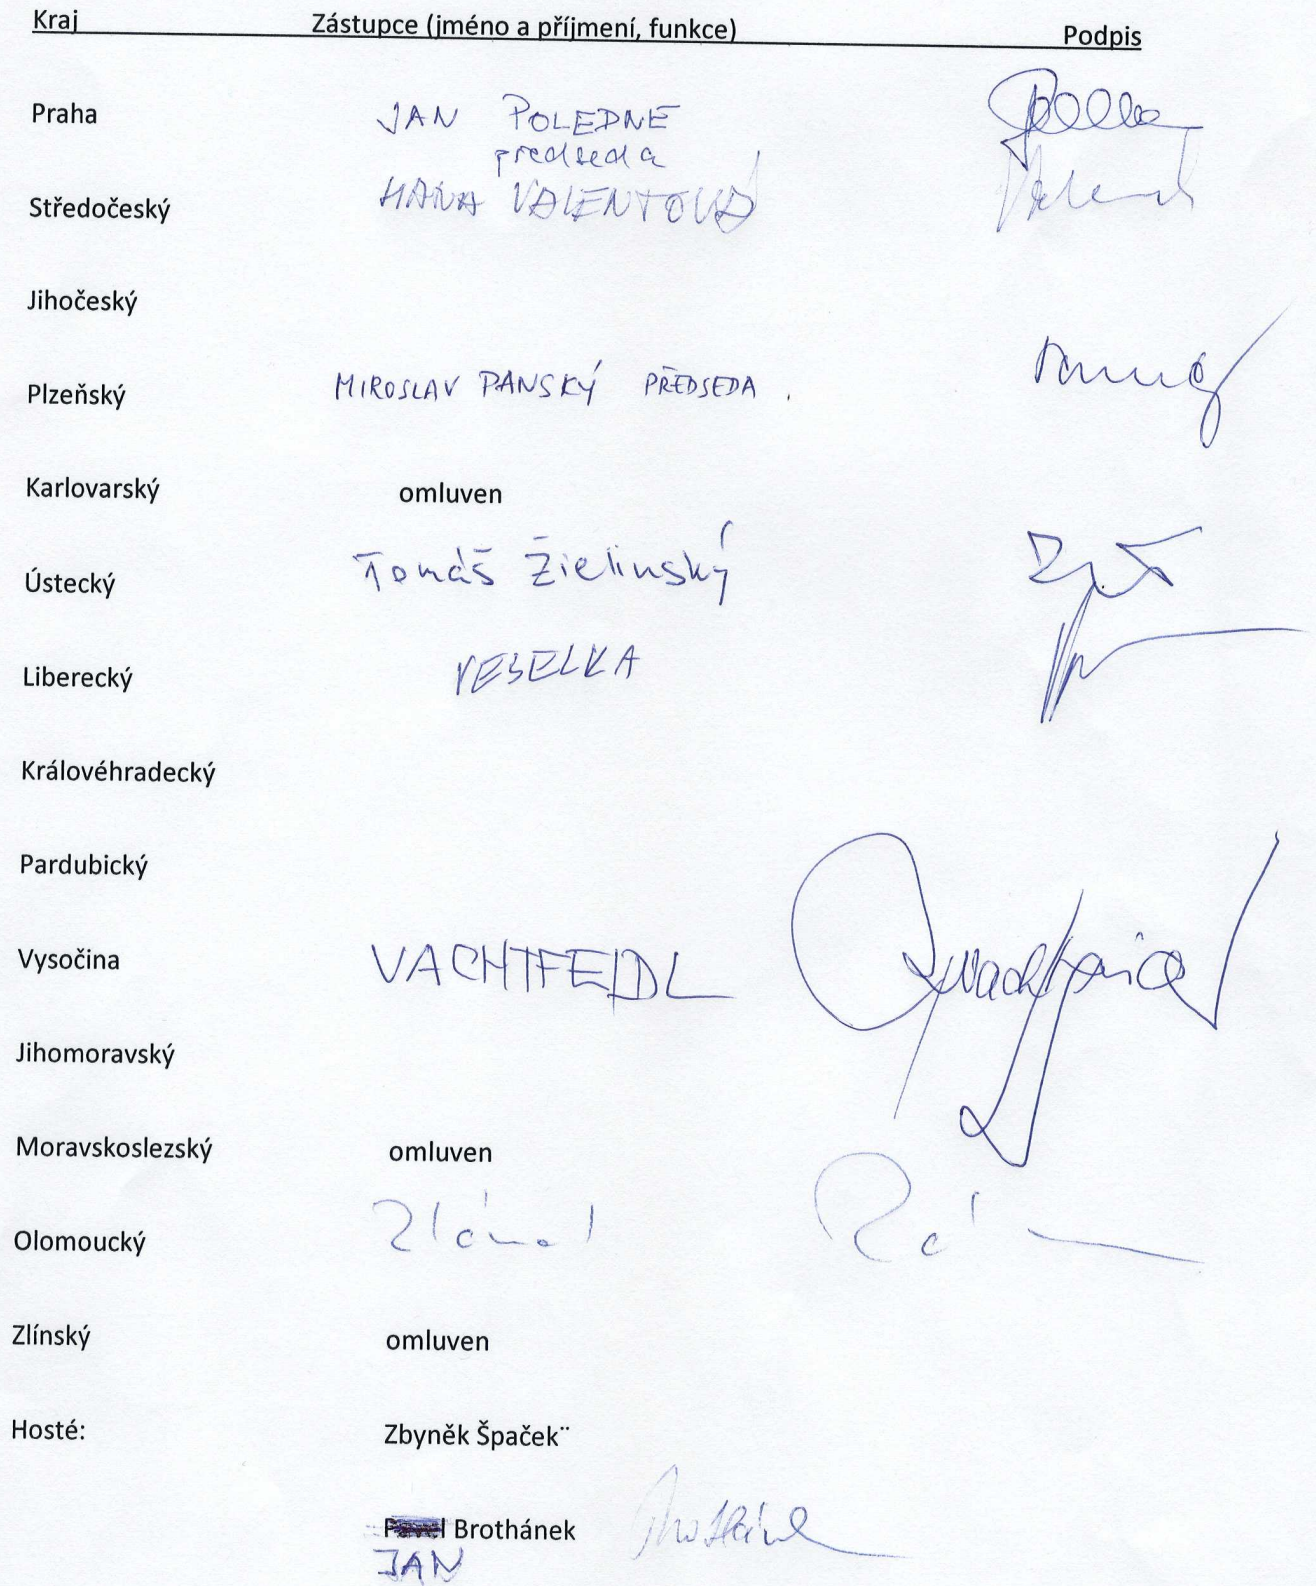 Kraj Zástupce (jméno a příjmení, funkce) Podpis
Praha JAN POLEDNE
předseda
Středočeský HANA VALENTOVÁ
Jihočeský
Plzeňský MIROSLAV PANSKÝ PŘEDSEDA .
Karlovarský omluven
Ústecký Tomáš Žielinský
Liberecký VESELKA
Královéhradecký
Pardubický
Vysočina VACHTFEIDL
Jihomoravský
Moravskoslezský omluven
Olomoucký
Zlínský omluven
Hosté: Zbyněk Špaček¨
Pavel Brothánek
JAN